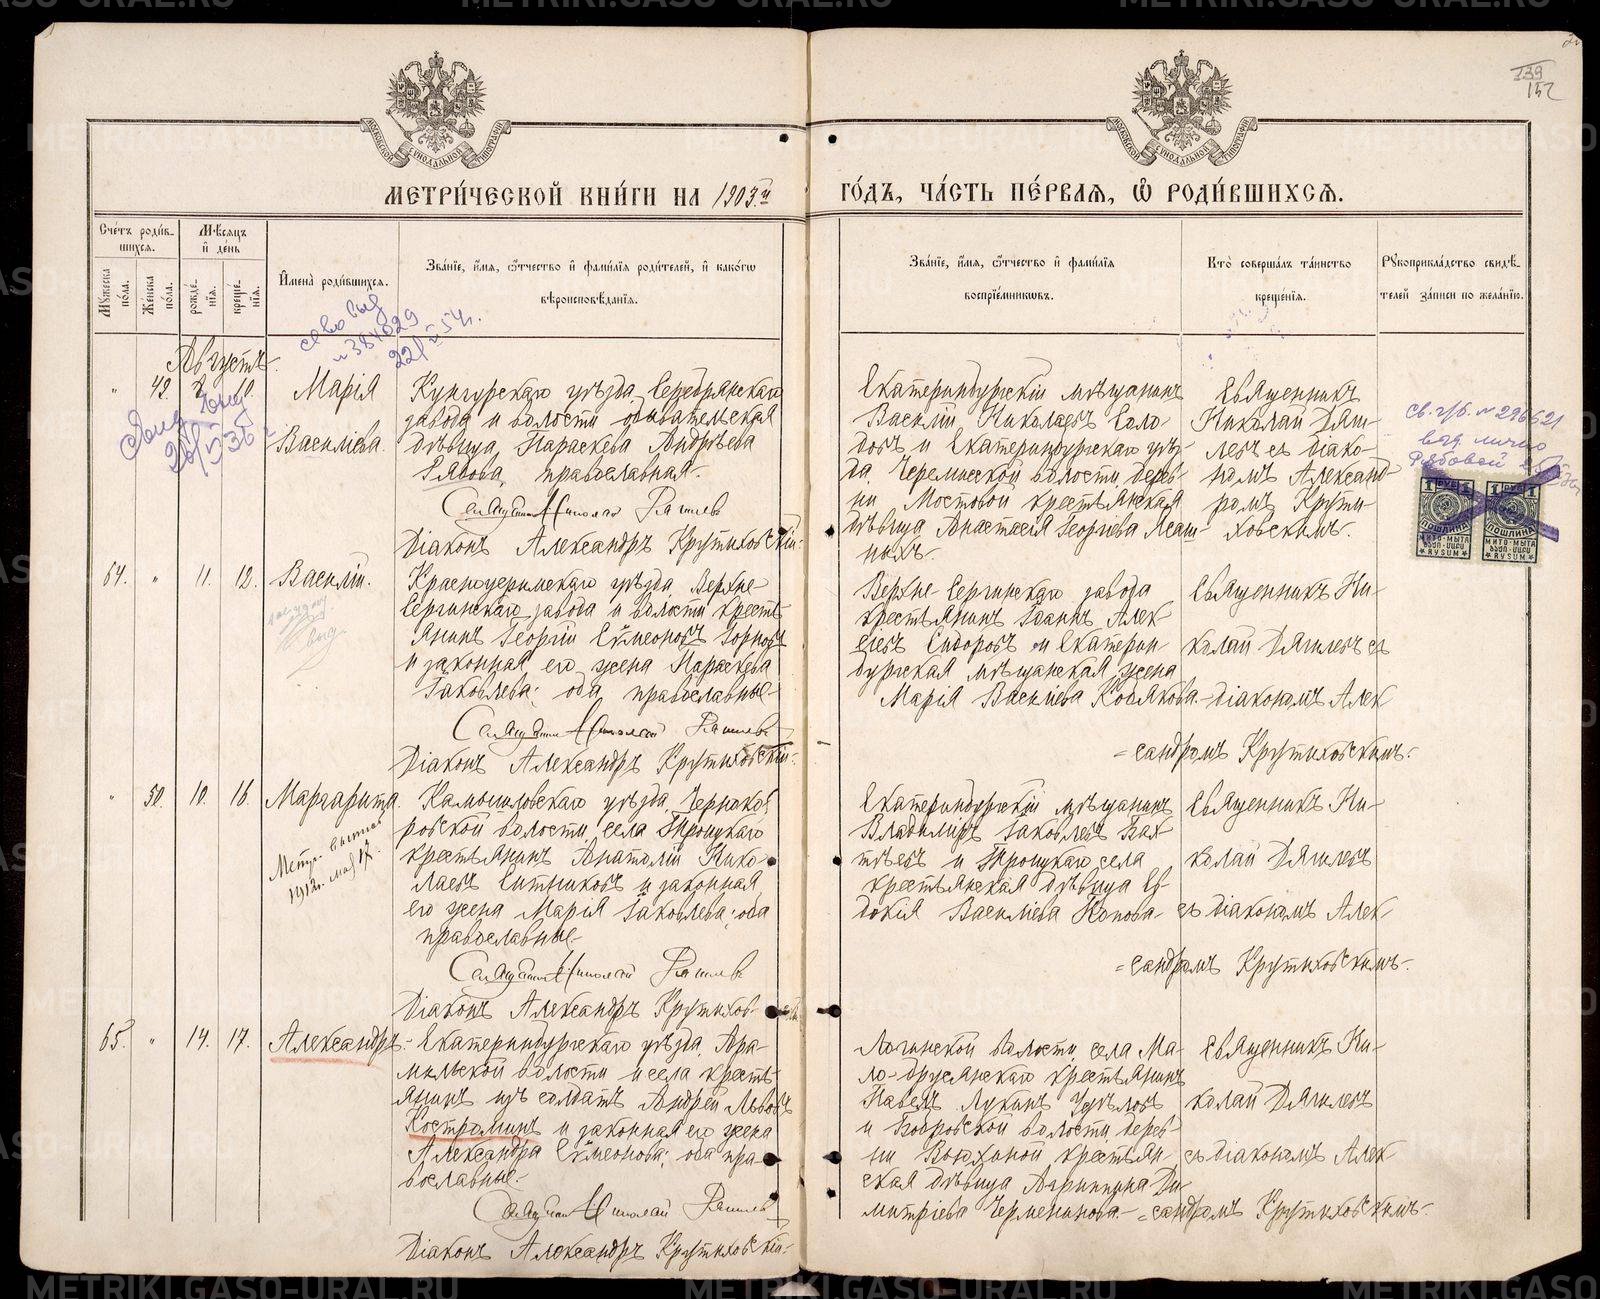 МЕТРИ́ЧЕСКОЙ КНИ́ГИ НА 1903й ГО́ДЪ, ЧА́СТЬ ПЕ́РВАЯ, Ѡ РОДИ́ВШИХСЯ.
139
152
Сче́тъ роди́вшихся.
Му́жеска по́ла.
Же́нска по́ла.
Мѣ́сяцъ и де́нь
рожде́нія.
креще́нія.
Имена̀ роди́вшихся.
Зва́ніе, и́мя, ѻ́тчество и фами́лія роди́телей, и како́гѡ
вѣроисповѣ́данія.
Зва́ніе, и́мя, ѻ́тчество и фами́лія
воспріе́мниковъ.
Кто̀ соверша́лъ та́инство
креще́нія.
Рукоприкла́дство свидѣ́телей за́писи по жела́нію.
Августъ.
" 49. 2 10. Марія
Василіева.
Кунгурскаго уѣзда, Серебрянскаго
завода и волости обывательская
дѣвица Параскева Андрѣева
православная.
Священникъ Николай
Діаконъ Александръ Крутиховскій.
Екатеринбургскій мѣщанинъ
Василій Николаевъ Соло-
довъ и Екатеринбургскаго уѣз-
да, Черемисской волости, дерев-
ни Мостовой крестьянская
дѣвица Анастасія Георгіева
Священникъ
Николай Дяги-
левъ съ діако-
номъ Александ-
ромъ Крути-
ховскимъ.
св. о/б. № 296621
выд. лично
1 РУБ 1
ПОШЛИНА
1 РУБ 1
ПОШЛИНА
64. " 11. 12. Василій.
Красноуфимскаго уѣзда Верхне-
Сергинскаго завода и волости кресть-
янинъ Георгій Сѵмеоновъ
и законная его жена Параскева
Іаковлева; оба православные
Священникъ Николай
Діаконъ Александръ Крутиховскій.
Верхне-Сергинскаго завода
крестьянинъ Іоаннъ Алек-
сѣевъ Сидоровъ и Екатерин-
бургская мѣщанская жена
Марія Василіева Кобякова.
Священникъ Ни-
колай Дягилевъ съ
діакономъ Алек-
=сандромъ Крутиховскимъ.
" 50. 10. 16. Маргарита.
Метр. выпись
1912г. мая 17.
Камышловскаго уѣзда,
ровской волости, села Троицкаго
крестьянинъ Анатолій Нико-
лаевъ Ситниковъ и законная
его жена Марія Іаковлева; оба
православные.
Священникъ Николай
Діаконъ Александръ Крутихов-
Екатеринбургскій мѣщанинъ
Владиміръ Іаковлевъ Бах-
тѣевъ и Троицкаго села
крестьянская дѣвица Ев-
докія Василіева Попова-
Священникъ Ни-
колай Дягилевъ
съ діакономъ Алек-
=сандромъ Крутиховскимъ.
65. " 14. 17. Александръ.
Екатеринбургскаго уѣзда, Ара-
мильской волости и села кресть-
янинъ изъ солдатъ Андрей Львовъ
Костроминъ и законная его жена
Александра Сѵмеонова; оба пра-
вославные.
Священникъ Николай
Діаконъ Александръ Крутиховскій.
Логиновской волости, села Ма-
ло-Брусянскаго крестьянинъ
Павелъ Лукинъ
и Бобровской волости, дерев-
ни Вьюхиной крестьян-
ская дѣвица Агриппина Ди-
митріева
Священникъ Ни-
колай Дягилевъ
съ діакономъ Алек-
=сандромъ Крутиховскимъ.
METRIKI.GASO-URAL.RU